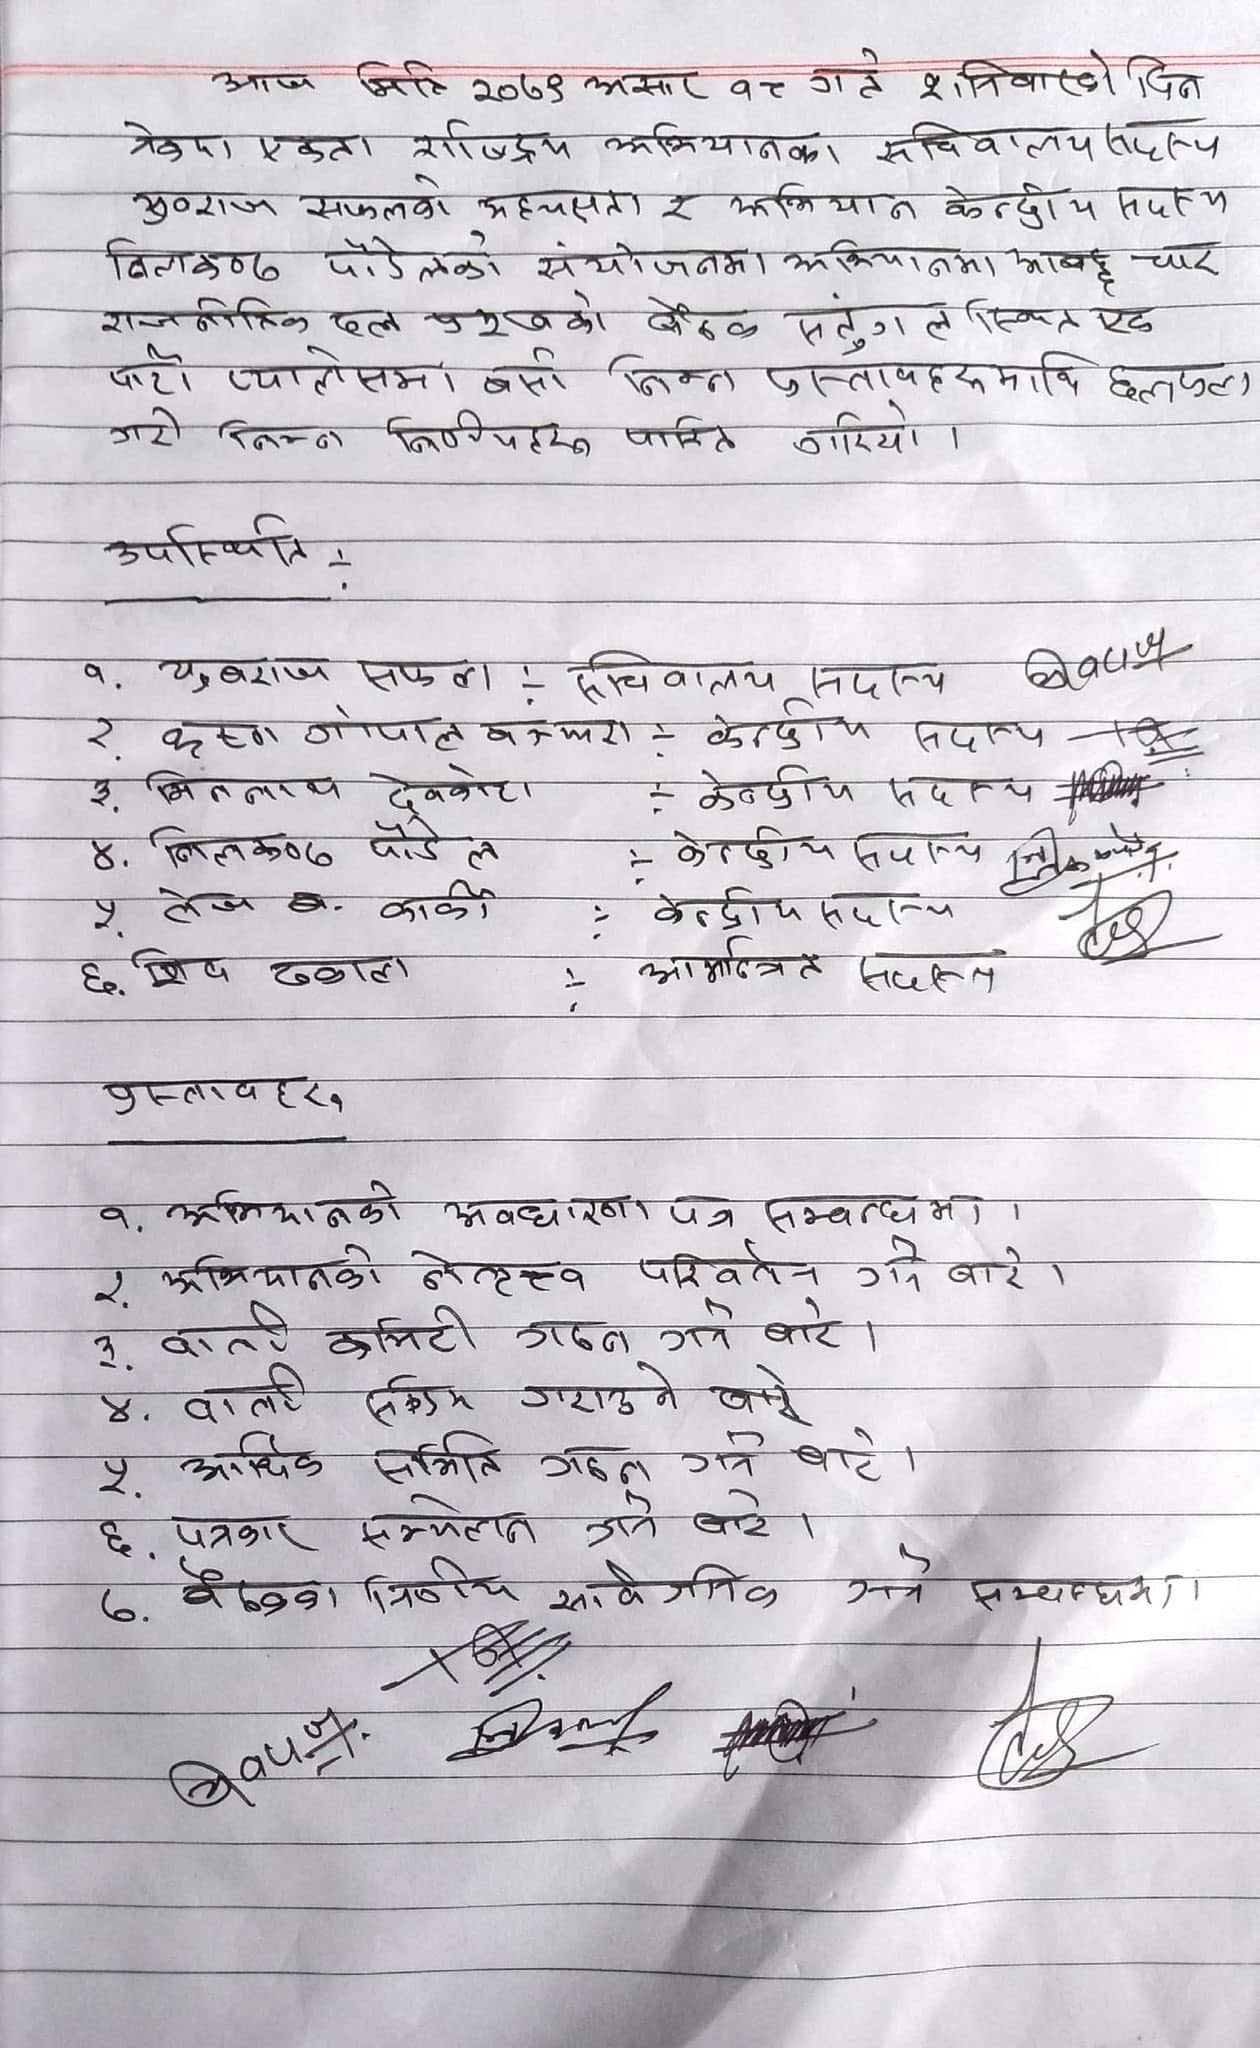 आज मिति २०७९ असार १८ गते शनिवारको दिन
नेकपा एकता राष्ट्रिय अभियानका सचिवालय सदस्य
युवराज सफलको अध्यक्षता र अभियान केन्द्रीय सदस्य
निलकण्ठ पौडेलको संयोजनमा अभियानमा आबद्द चार
राजनीतिक दल प्रमुखको बैठक सतुंगल स्थित
पार्टी प्यालेसमा बसी निम्न प्रस्तावहरूमाथि छलफल
गरी निम्न निर्णयहरू पारित गरियो ।
उपस्थिति :-
१. युवराज सफल :- सचिवालय सदस्य
२. कृष्ण गोपाल :- केन्द्रीय सदस्य
३. मिननाथ देवकोटा :- केन्द्रीय सदस्य
४. निलकण्ठ पौडेल :- केन्द्रीय सदस्य
५. तेज ब. कार्की :- केन्द्रीय सदस्य
६. शिव ढकाल :- आमन्त्रित सदस्य
प्रस्तावहरू
१. अभियानको अवधारणा पत्र सम्बन्धमा ।
२. अभियानको नेतृत्त्व परिवर्तन गर्ने बारे ।
३. वार्ता कमिटी गठन गर्ने बारे ।
४. वार्ता सक्रिय गराउने बारे
५. आर्थिक समिति गठन गर्ने बारे ।
६. पत्रकार सम्मेलन गर्ने बारे ।
७. बैठकका निर्णय सार्वजनिक गर्ने सम्बन्धमा ।